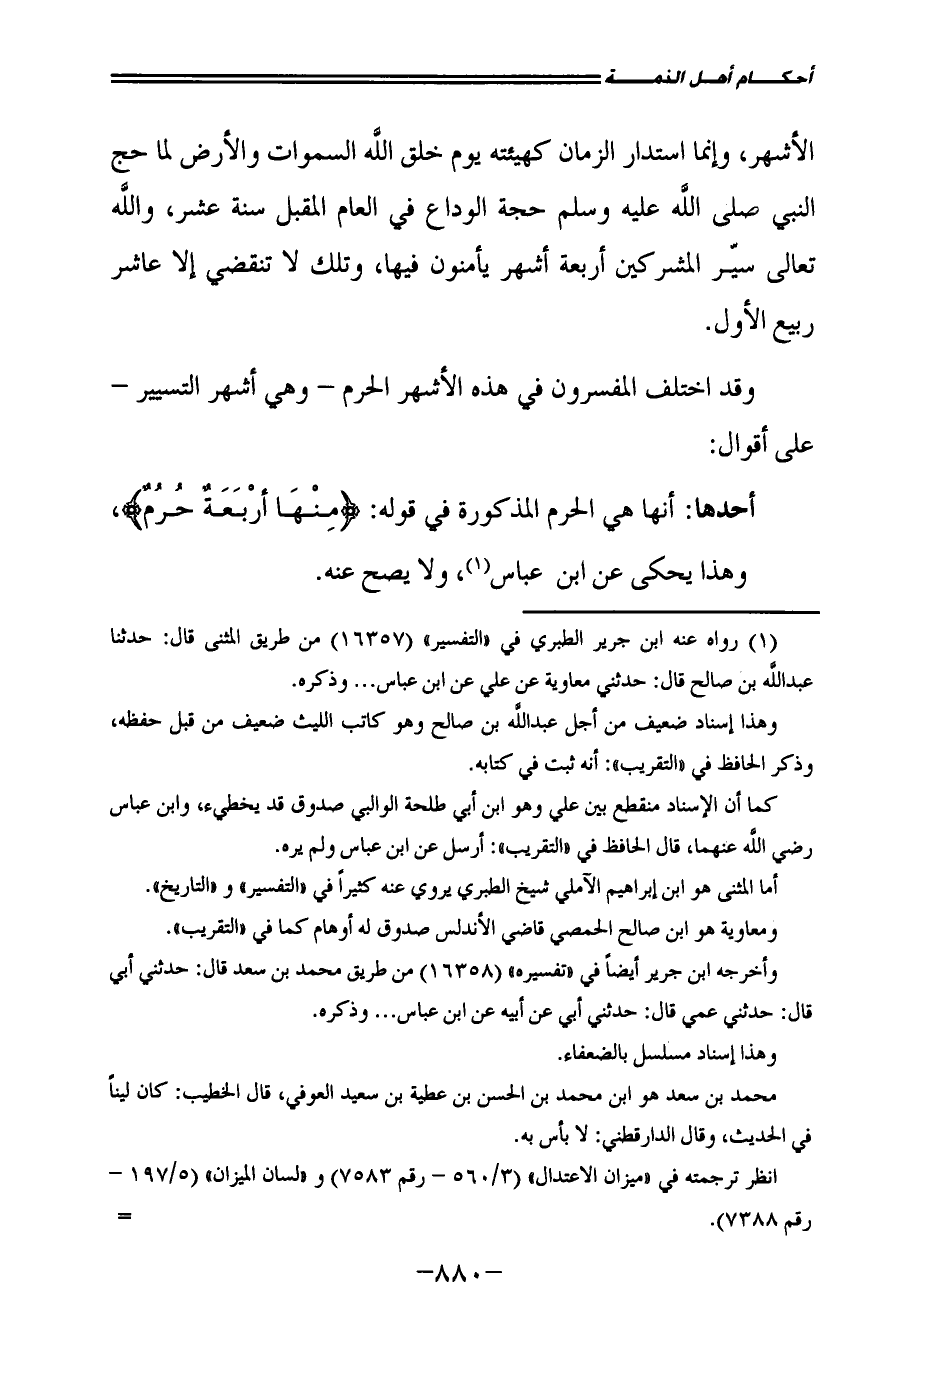 أحكــــام أهــل الذمــــة
الأشهر، وإنما استدار الزمان كهيئته يوم خلق اللَّه السموات والأرض لما حج
النبي صلى اللَّه عليه وسلم حجة الوداع في العام المقبل سنة عشر، واللَّه
تعالى سيّر المشركين أربعة أشهر يأمنون فيها، وتلك لا تنقضي إلا عاشر
ربيع الأول.
وقد اختلف المفسرون في هذه الأشهر الحرم – وهي أشهر التسيير –
على أقوال:
أحدها: أنها هي الحرم المذكورة في قوله: ﴿مِنْهَا أَرْبَعَةٌ حُرُمٌ﴾،
وهذا يحكى عن ابن عباس(١)، ولا يصح عنه.
(١) رواه عنه ابن جرير الطبري في «التفسير» (١٦٣٥٧) من طريق المثنى قال: حدثنا
عبداللَّه بن صالح قال: حدثني معاوية عن علي عن ابن عباس... وذكره.
وهذا إسناد ضعيف من أجل عبداللَّه بن صالح وهو كاتب الليث ضعيف من قبل حفظه،
وذكر الحافظ في «التقريب»: أنه ثبت في كتابه.
كما أن الإسناد منقطع بين علي وهو ابن أبي طلحة الوالبي صدوق قد يخطيء، وابن عباس
رضي اللَّه عنهما، قال الحافظ في «التقريب»: أرسل عن ابن عباس ولم يره.
أما المثنى هو ابن إبراهيم الآملي شيخ الطبري يروي عنه كثيراً في «التفسير» و «التاريخ».
ومعاوية هو ابن صالح الحمصي قاضي الأندلس صدوق له أوهام كما في «التقريب».
وأخرجه ابن جرير أيضاً في «تفسيره» (١٦٣٥٨) من طريق محمد بن سعد قال: حدثني أبي
قال: حدثني عمي قال: حدثني أبي عن أبيه عن ابن عباس... وذكره.
وهذا إسناد مسلسل بالضعفاء.
محمد بن سعد هو ابن محمد بن الحسن بن عطية بن سعيد العوفي، قال الخطيب: كان ليناً
في الحديث، وقال الدارقطني: لا بأس به.
انظر ترجمته في «ميزان الاعتدال» (٥٦٠/٣ – رقم ٧٥٨٣) و «لسان الميزان» (١٩٧/٥ –
رقم ٧٣٨٨). =
–٨٨٠–